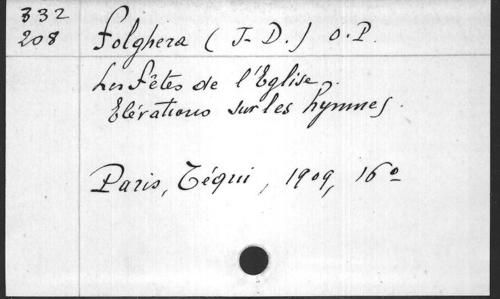 332
208
Folghera (J-D.) O.P.
Les Fêtes de l'Église.
Elévations sur les hymnes.
Paris, Téqui, 1909, 16º